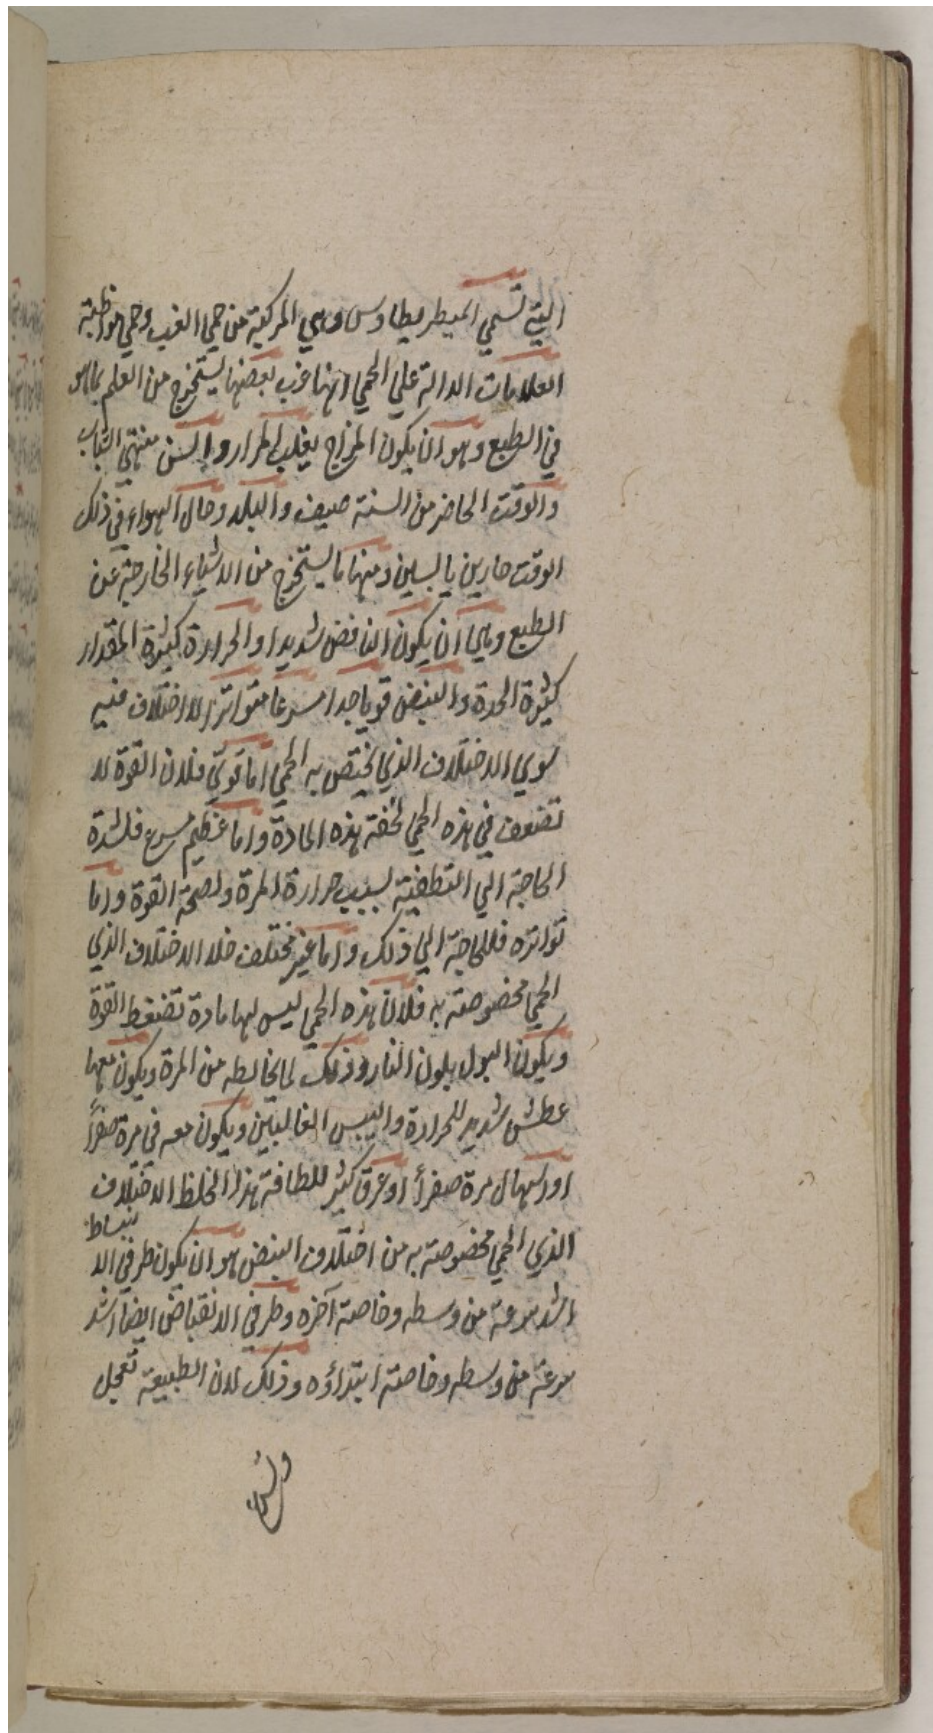 التي تسمي المبطريطاوس وهي المركبة من حمي الغب وحمي مواظبة
العلامات الدالة علي الحمي انها غب بعضها يستخرج من العلم بما هو
في الطبع وهو ان يكون المزاج يغلب المرار والسن منتهي الشباب
والوقت الحاضر من السنة صيف والبلد وحال الهواء في ذلك
الوقت حارين يابسين ومنها ما يستخرج من الاشياء الخارجة عن
الطبع وهي ان يكون النافض شديدا والحرارة كثيرة المقدار
كثيرة الحدة والنبض قويا جدا مسرعا متواترا لا اختلاف فيه
سوي الاختلاف الذي يختص به الحمي اما قوي فلان القوة لا
تضعف في هذه الحمي لخفة هذه المادة واما عظيم مسرع فلشدة
الحاجة الي التطفية لسبب حرارة المرة ولصحة القوة واما
تواتره فللحاجة الي ذلك واما غير مختلف خلا الاختلاف الذي
الحمي مخصوصة به فلان هذه الحمي ليس لها مادة تضغط القوة
ويكون البول بلون النار وذلك لما يخالطه من المرة ويكون معها
عطش شديد للحرارة واليبس الغالبين ويكون معه قي مرة صفرأ
او اسهال مرة صفرأ او عرق كثير للطافة هذا الخلط الاختلاف
الذي الحمي مخصوصة به من اختلاف النبض هو ان يكون طرفي الا
نبساط
اشد سرعة من وسطه وخاصة آخره وطرفي الانقباض ايضا اشد
سرعة من وسطه وخاصة ابتداؤه وذلك لان الطبيعة تعجل